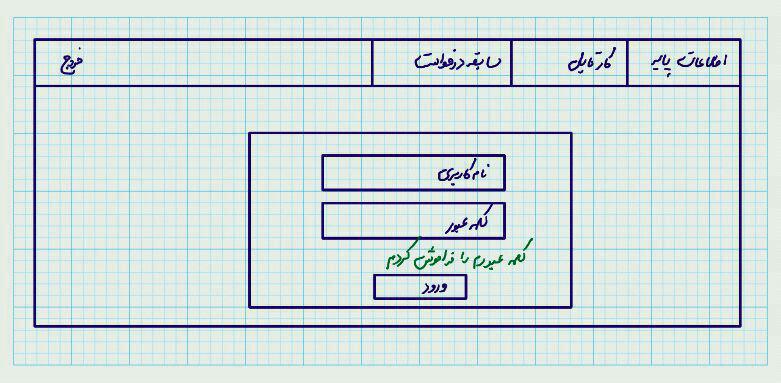 اطلاعات پایه کارتابل سابقه درخواست خروج
نام کاربری
کلمه عبور
کلمه عبورم را فراموش کردم
ورود